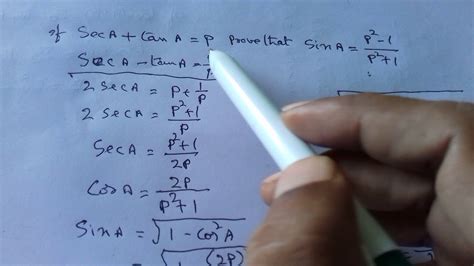 If SecA + tanA = P Prove that SinA = P²-1/P²+1
SecA - tanA = 1/P
2 SecA = P + 1/P
2 SecA = P²+1/P
SecA = P²+1/2P
CosA = 2P/P²+1
SinA = √1 - Cos²A